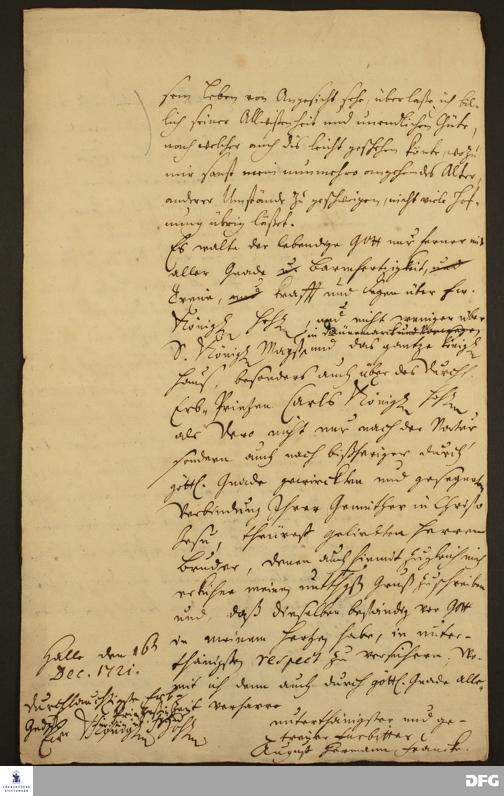 sein Leben von Angesicht sehe, überlasse ich bil-
lich seiner Allwissenheit und unendlichen Güte,
nach welcher auch dis leicht geschehen könte, wozu
mir sonst mein nunmehro angehendes Alter,
anderer Umstände zu geschweigen, nicht viele Hof-
nung übrig lässet.
Es walte der lebendige Gott nur ferner mit
aller Gnade u. Barmhertzigkeit, und
Treue, und krafft und Segen über Ew.
Königl. Hoh. und nicht weniger über
in Dännemarck und Norwegen
S. Königl. Mayst. und das gantze Königl.
Hauß, besonders auch über des Durchl.
Erb-Printzen Carls Königl. Hoh.
als Dero nicht nur nach der Natur
sondern auch nach bißheriger durch
göttl. Gnade gewirckten und gesegneten
Verbindung Ihrer Gemüther in Christo
Jesu, theurest geliebten Herrn
Bruder, denen auch hiemit zugleich mich
erkühne meinen Gruß zuschreiben
und, daß dieselben beständig vor Gott
in meinem Hertzen habe, in unter-
thänigstem respect zu versichern. Wo-
mit ich denn auch durch göttl. Gnade alle-
zeit verharre
Halle den 16
Dec. 1721.
Durchlauchtigste Erb-
Ew. Königl. Hoh.
unterthänigster und ge-
treuer Fürbitter
August Hermann Francke.
FRANCKESCHE
STIFTUNGEN
DFG